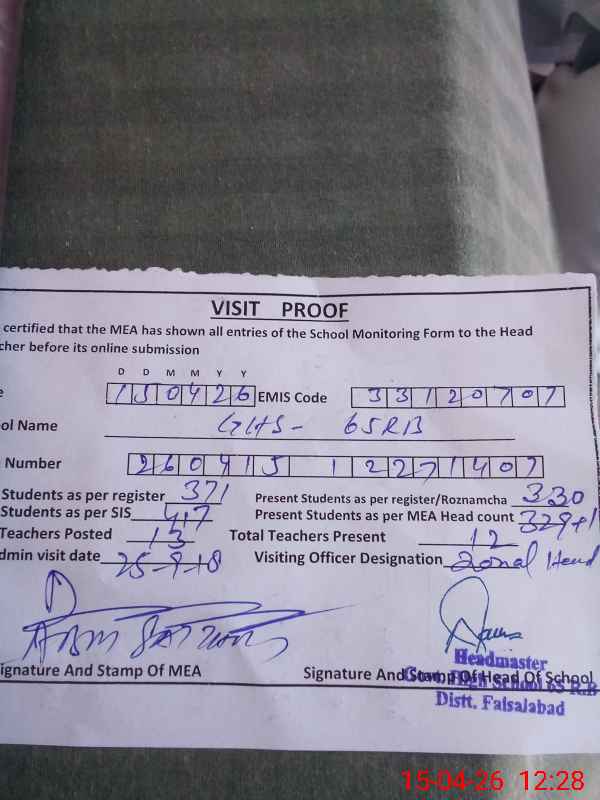 VISIT PROOF
certified that the MEA has shown all entries of the School Monitoring Form to the Head
cher before its online submission
D D M M Y Y
e 150426 EMIS Code 33120707
ol Name GHS- 65RB
Number 260415 1 2271407
Students as per register 371 Present Students as per register/Roznamcha 330
Students as per SIS 417 Present Students as per MEA Head count 329+1
Teachers Posted 13 Total Teachers Present 12
dmin visit date 25-9-18 Visiting Officer Designation Zonal Head
ignature And Stamp Of MEA Signature And Stamp Of Head Of School
Headmaster
Govt. High School 65 R.B
Distt. Faisalabad
15-04-26 12:28